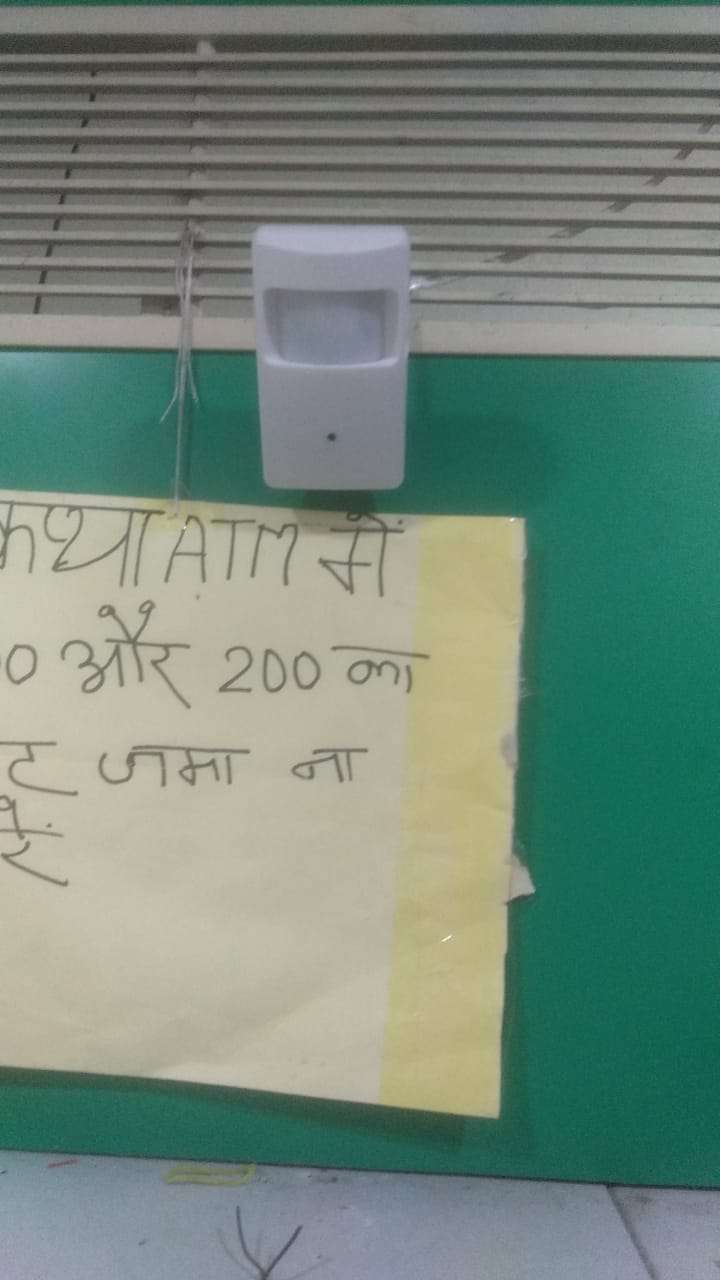 कृपया ATM में
00 और 200 का
नोट जमा ना
करें